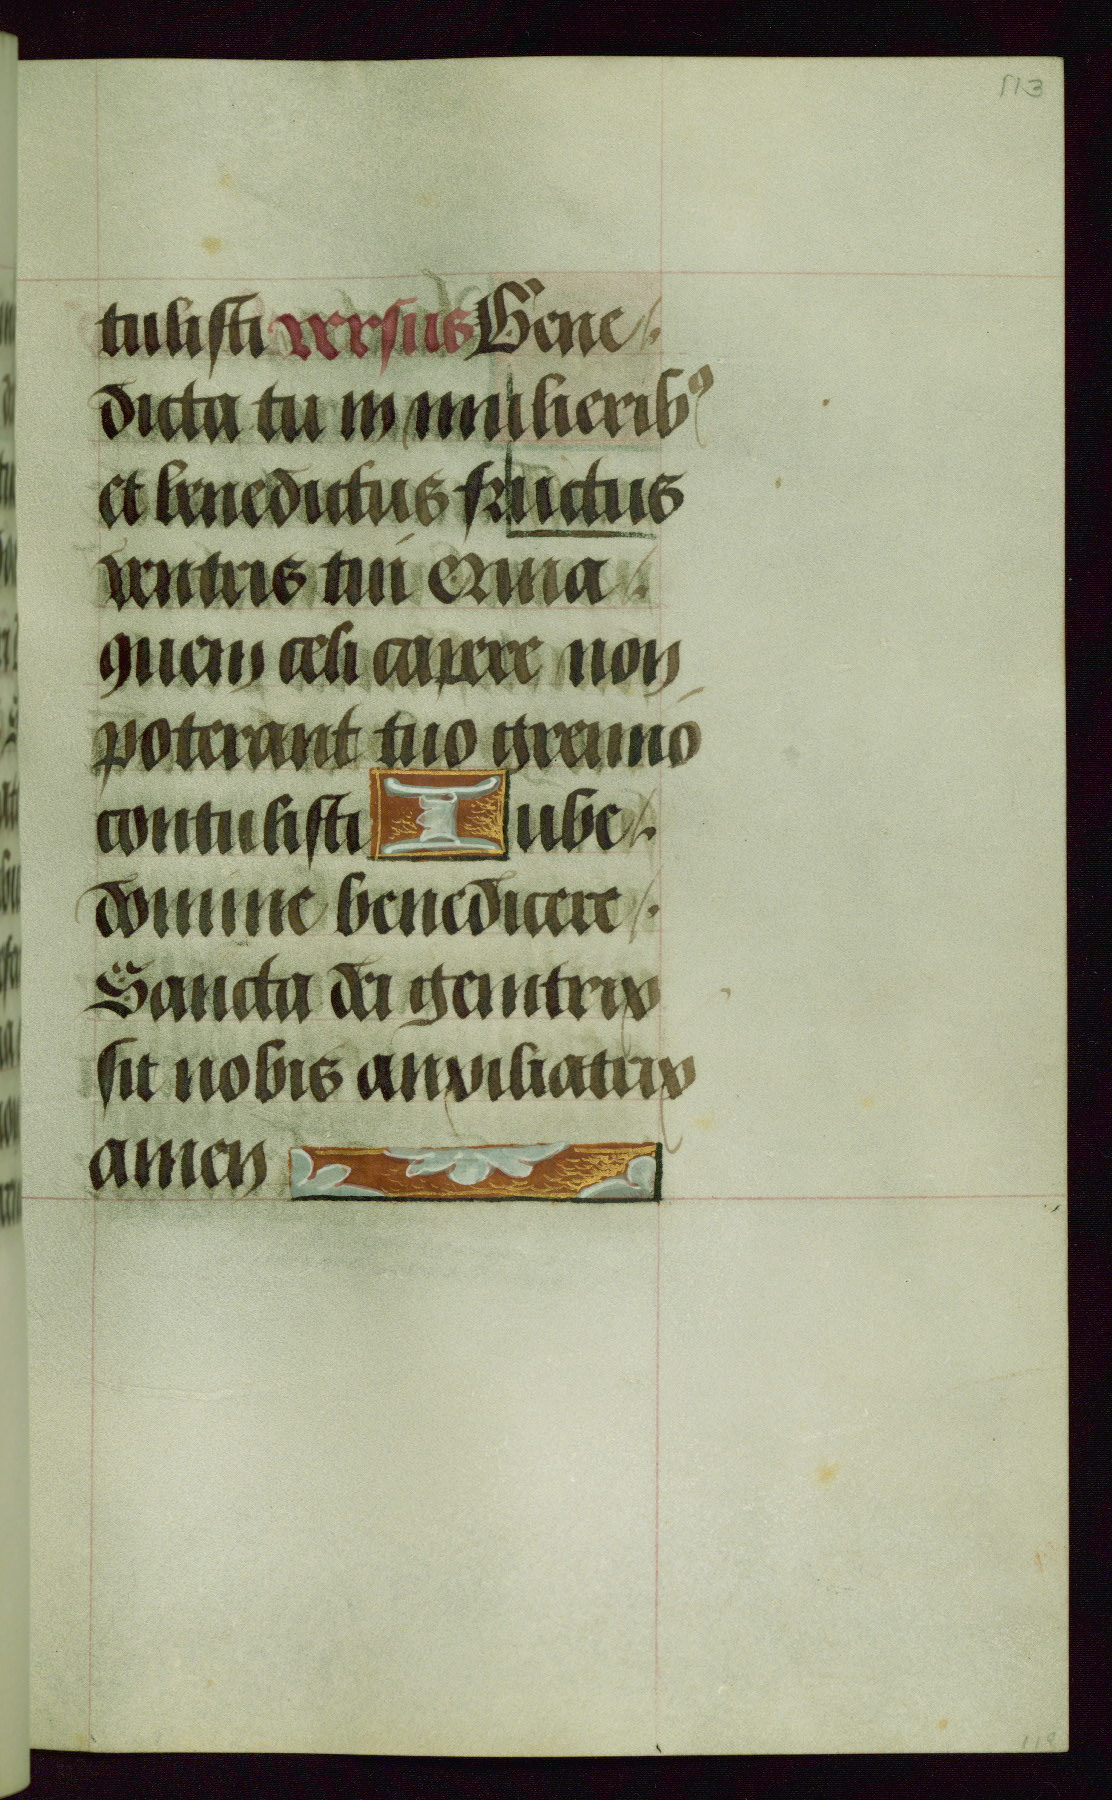 113
tulisti versus Bene
dicta tu in mulierib⁹
et benedictus fructus
ventris tui Quia
quem celi capere non
poterant tuo gremio
contulisti Iube
domine benedicere
Sancta dei genitrix
sit nobis auxiliatrix
amen